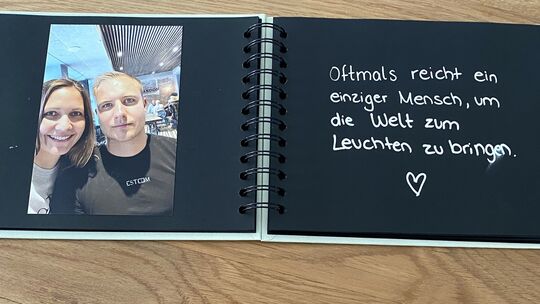 Oftmals reicht ein
einziger Mensch, um
die Welt zum
Leuchten zu bringen.